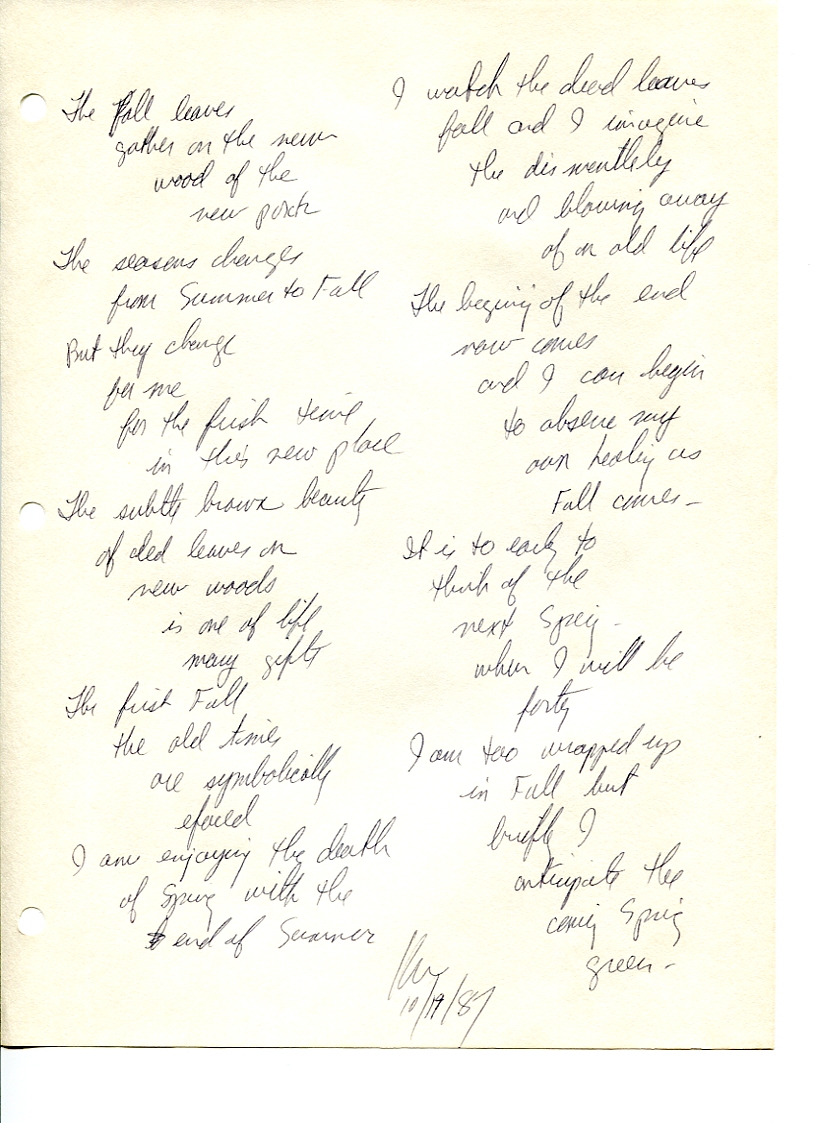 The Fall leaves
gather on the new
wood of the
new porch
The seasons changes
from Summer to Fall
But they change
for me
for the first time
in this new place
The subtle brown beauty
of ded leaves on
new woods
is one of life
many gifts
The first Fall
the old times
are symbolically
efaced
I am enjoying the death
of Spring with the
end of Summer
I watch the dead leaves
fall and I imagine
the dismentlely
and blowing away
of an old life
The begining of the end
now comes
and I can begin
to observe my
own healing as
Fall comes -
It is to early to
think of the
next Spring -
when I will be
forty
I am too wrapped up
in Fall but
briefly I
anticipate the
coming Spring
green -
10/19/87